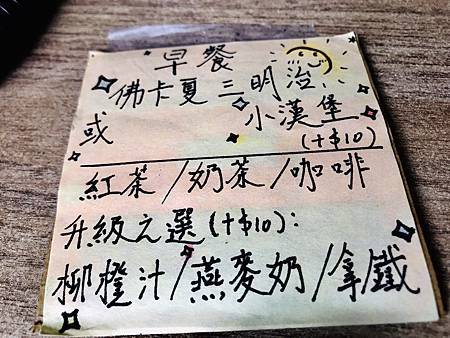 早餐
佛卡夏 三明治
或 小漢堡
(+$10)
紅茶/奶茶/咖啡
升級之選(+$10):
柳橙汁/燕麥奶/拿鐵